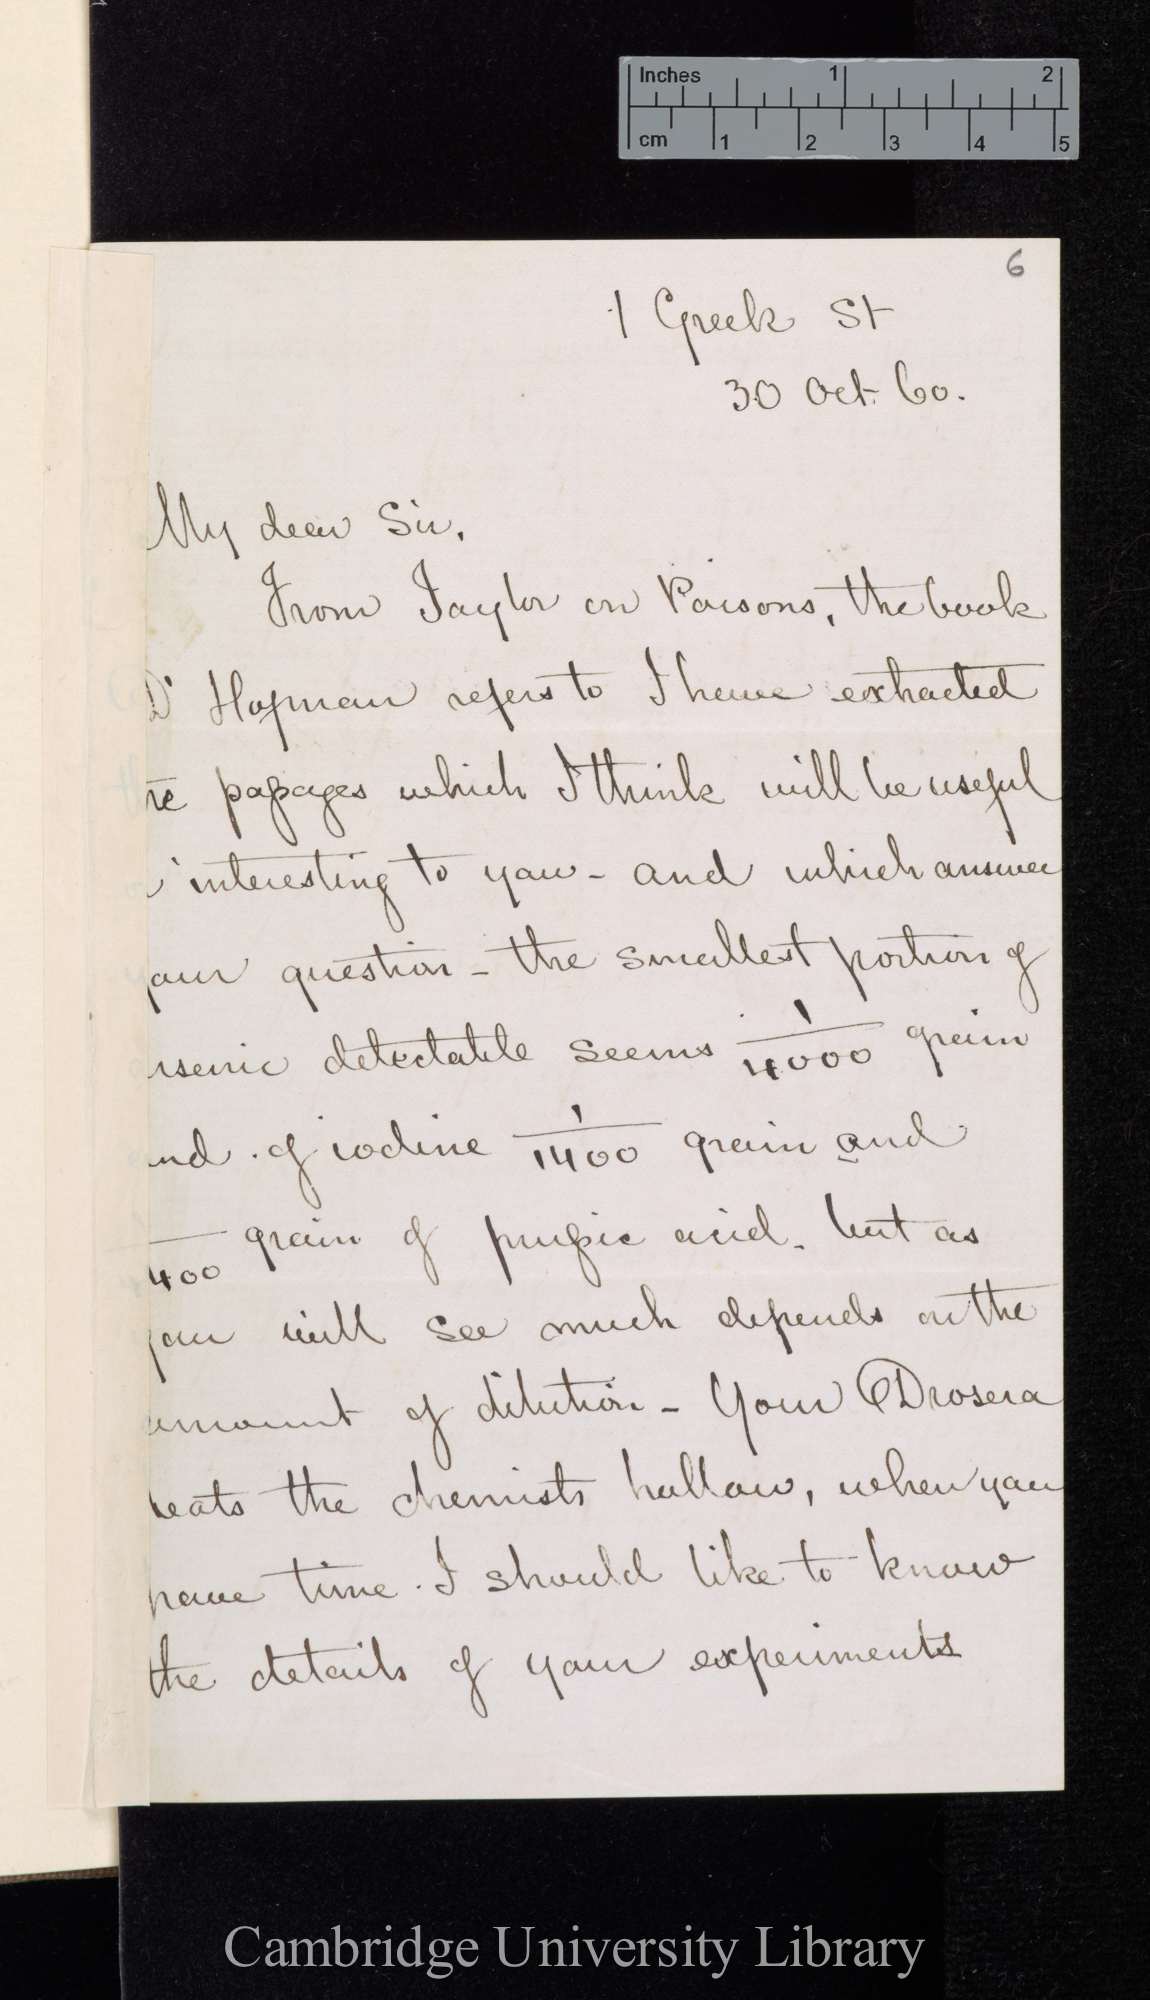 Inches 1 2
cm 1 2 3 4 5
6
1 Greek St
30 Oct. 60.
My dear Sir,
From Taylor on Poisons, the book
Dr Hofman refers to I have extracted
he passages which I think will be useful
interesting to you - and which answer
our question - the smallest portion of
rsenic detectable seems 1/4000 grain
nd of iodine 1/1400 grain and
400 grain of prussic acid. but as
you will see much depends on the
amount of dilution - Your Drosera
beats the chemists hollow, when you
have time I should like to know
the details of your experiments
Cambridge University Library